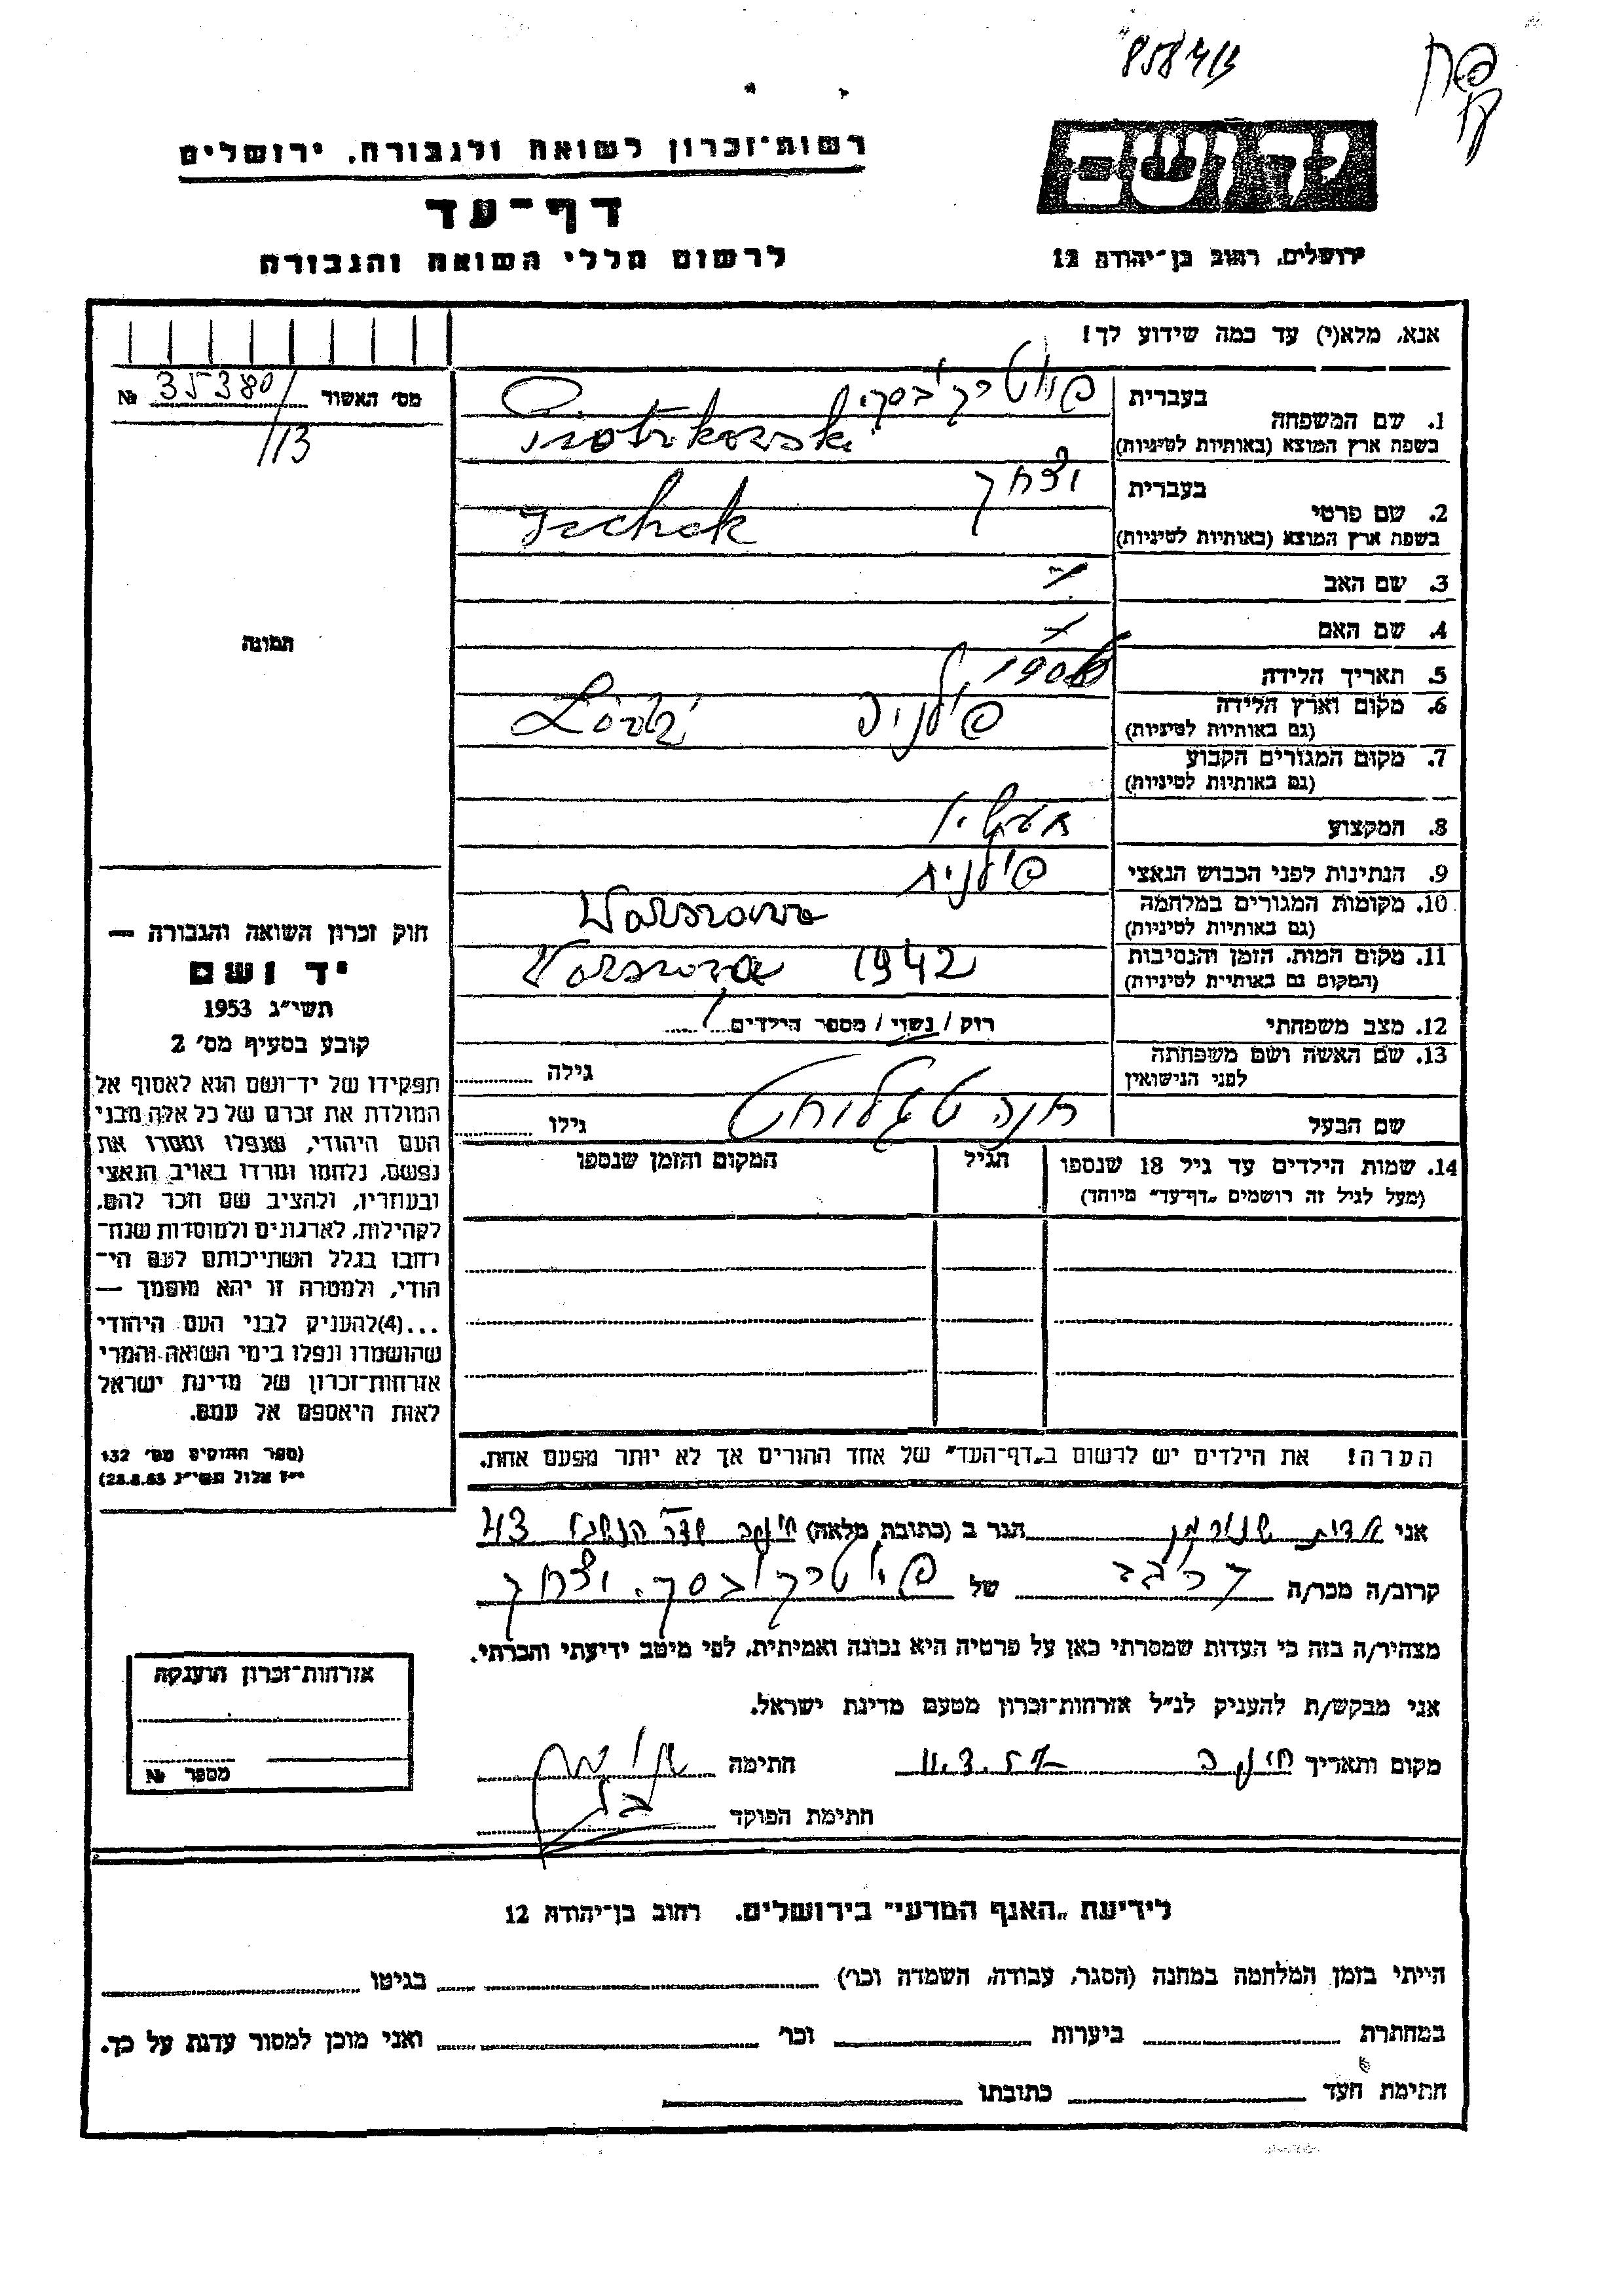 8584/3
יד ושם
רשות־זכרון לשואה ולגבורה, ירושלים
דף־עד
לרשום חללי השואה והגבורה
ירושלים, רחוב בן־יהודה 12
אנא, מלא(י) עד כמה שידוע לך!
מס׳ האשור 35380/ №
/13
1. שם המשפחה
בעברית פיוטרקובסקי
בשפת ארץ המוצא (באותיות לטיניות) Piotrkowski
2. שם פרטי
בעברית יצחק
בשפת ארץ המוצא (באותיות לטיניות) Icchok
3. שם האב
4. שם האם
5. תאריך הלידה
6. מקום וארץ הלידה
(גם באותיות לטיניות)
פולניה Łódź
7. מקום המגורים הקבוע
(גם באותיות לטיניות)
8. המקצוע
9. הנתינות לפני הכבוש הנאצי פולנית
10. מקומות המגורים במלחמה
(גם באותיות לטיניות)
Warszawa
11. מקום המות, הזמן והנסיבות
(המקום גם באותיות לטיניות)
Warszawa 1942
12. מצב משפחתי רוק / נשוי / מספר הילדים 1
13. שם האשה ושם משפחתה
לפני הנישואין
גילה
שם הבעל
חנה
גילו
14. שמות הילדים עד גיל 18 שנספו
(מעל לגיל זה רושמים „דף־עד״ מיוחד)
הגיל
המקום והזמן שנספו
הערה! את הילדים יש לרשום ב„דף־העד״ של אחד ההורים אך לא יותר מפעם אחת.
תמונה
חוק זכרון השואה והגבורה —
יד ושם
תשי״ג 1953
קובע בסעיף מס׳ 2
תפקידו של יד־ושם הוא לאסוף אל
המולדת את זכרם של כל אלה מבני
העם היהודי, שנפלו ומסרו את
נפשם, נלחמו ומרדו באויב הנאצי
ובעוזריו, ולהציב שם וזכר להם,
לקהילות, לארגונים ולמוסדות שנח־
רבו בגלל השתייכותם לעם הי־
הודי, ולמטרה זו יהא מוסמך —
...(4)להעניק לבני העם היהודי
שהושמדו ונפלו בימי השואה והמרי
אזרחות־זכרון של מדינת ישראל
לאות היאספם אל עמם.
(ספר החוקים מס׳ 132
י״ז אלול תשי״ג 28.8.53)
אני הגר ב (כתובת מלאה) חיפה שדר הנשיא 43
קרוב/ה מכר/ה של פיוטרקובסקי יצחק
מצהיר/ה בזה כי העדות שמסרתי כאן על פרטיה היא נכונה ואמיתית, לפי מיטב ידיעתי והכרתי.
אני מבקש/ת להעניק לנ״ל אזרחות־זכרון מטעם מדינת ישראל.
מקום ותאריך חיפה חתימה
חתימת הפוקד
אזרחות־זכרון הוענקה
מספר №
לידיעת „האגף המדעי״ בירושלים, רחוב בן־יהודה 12
הייתי בזמן המלחמה במחנה (הסגר, עבודה, השמדה וכו׳) בגיטו
במחתרת ביערות וכו׳ ואני מוכן למסור עדות על כך.
חתימת העד כתובתו